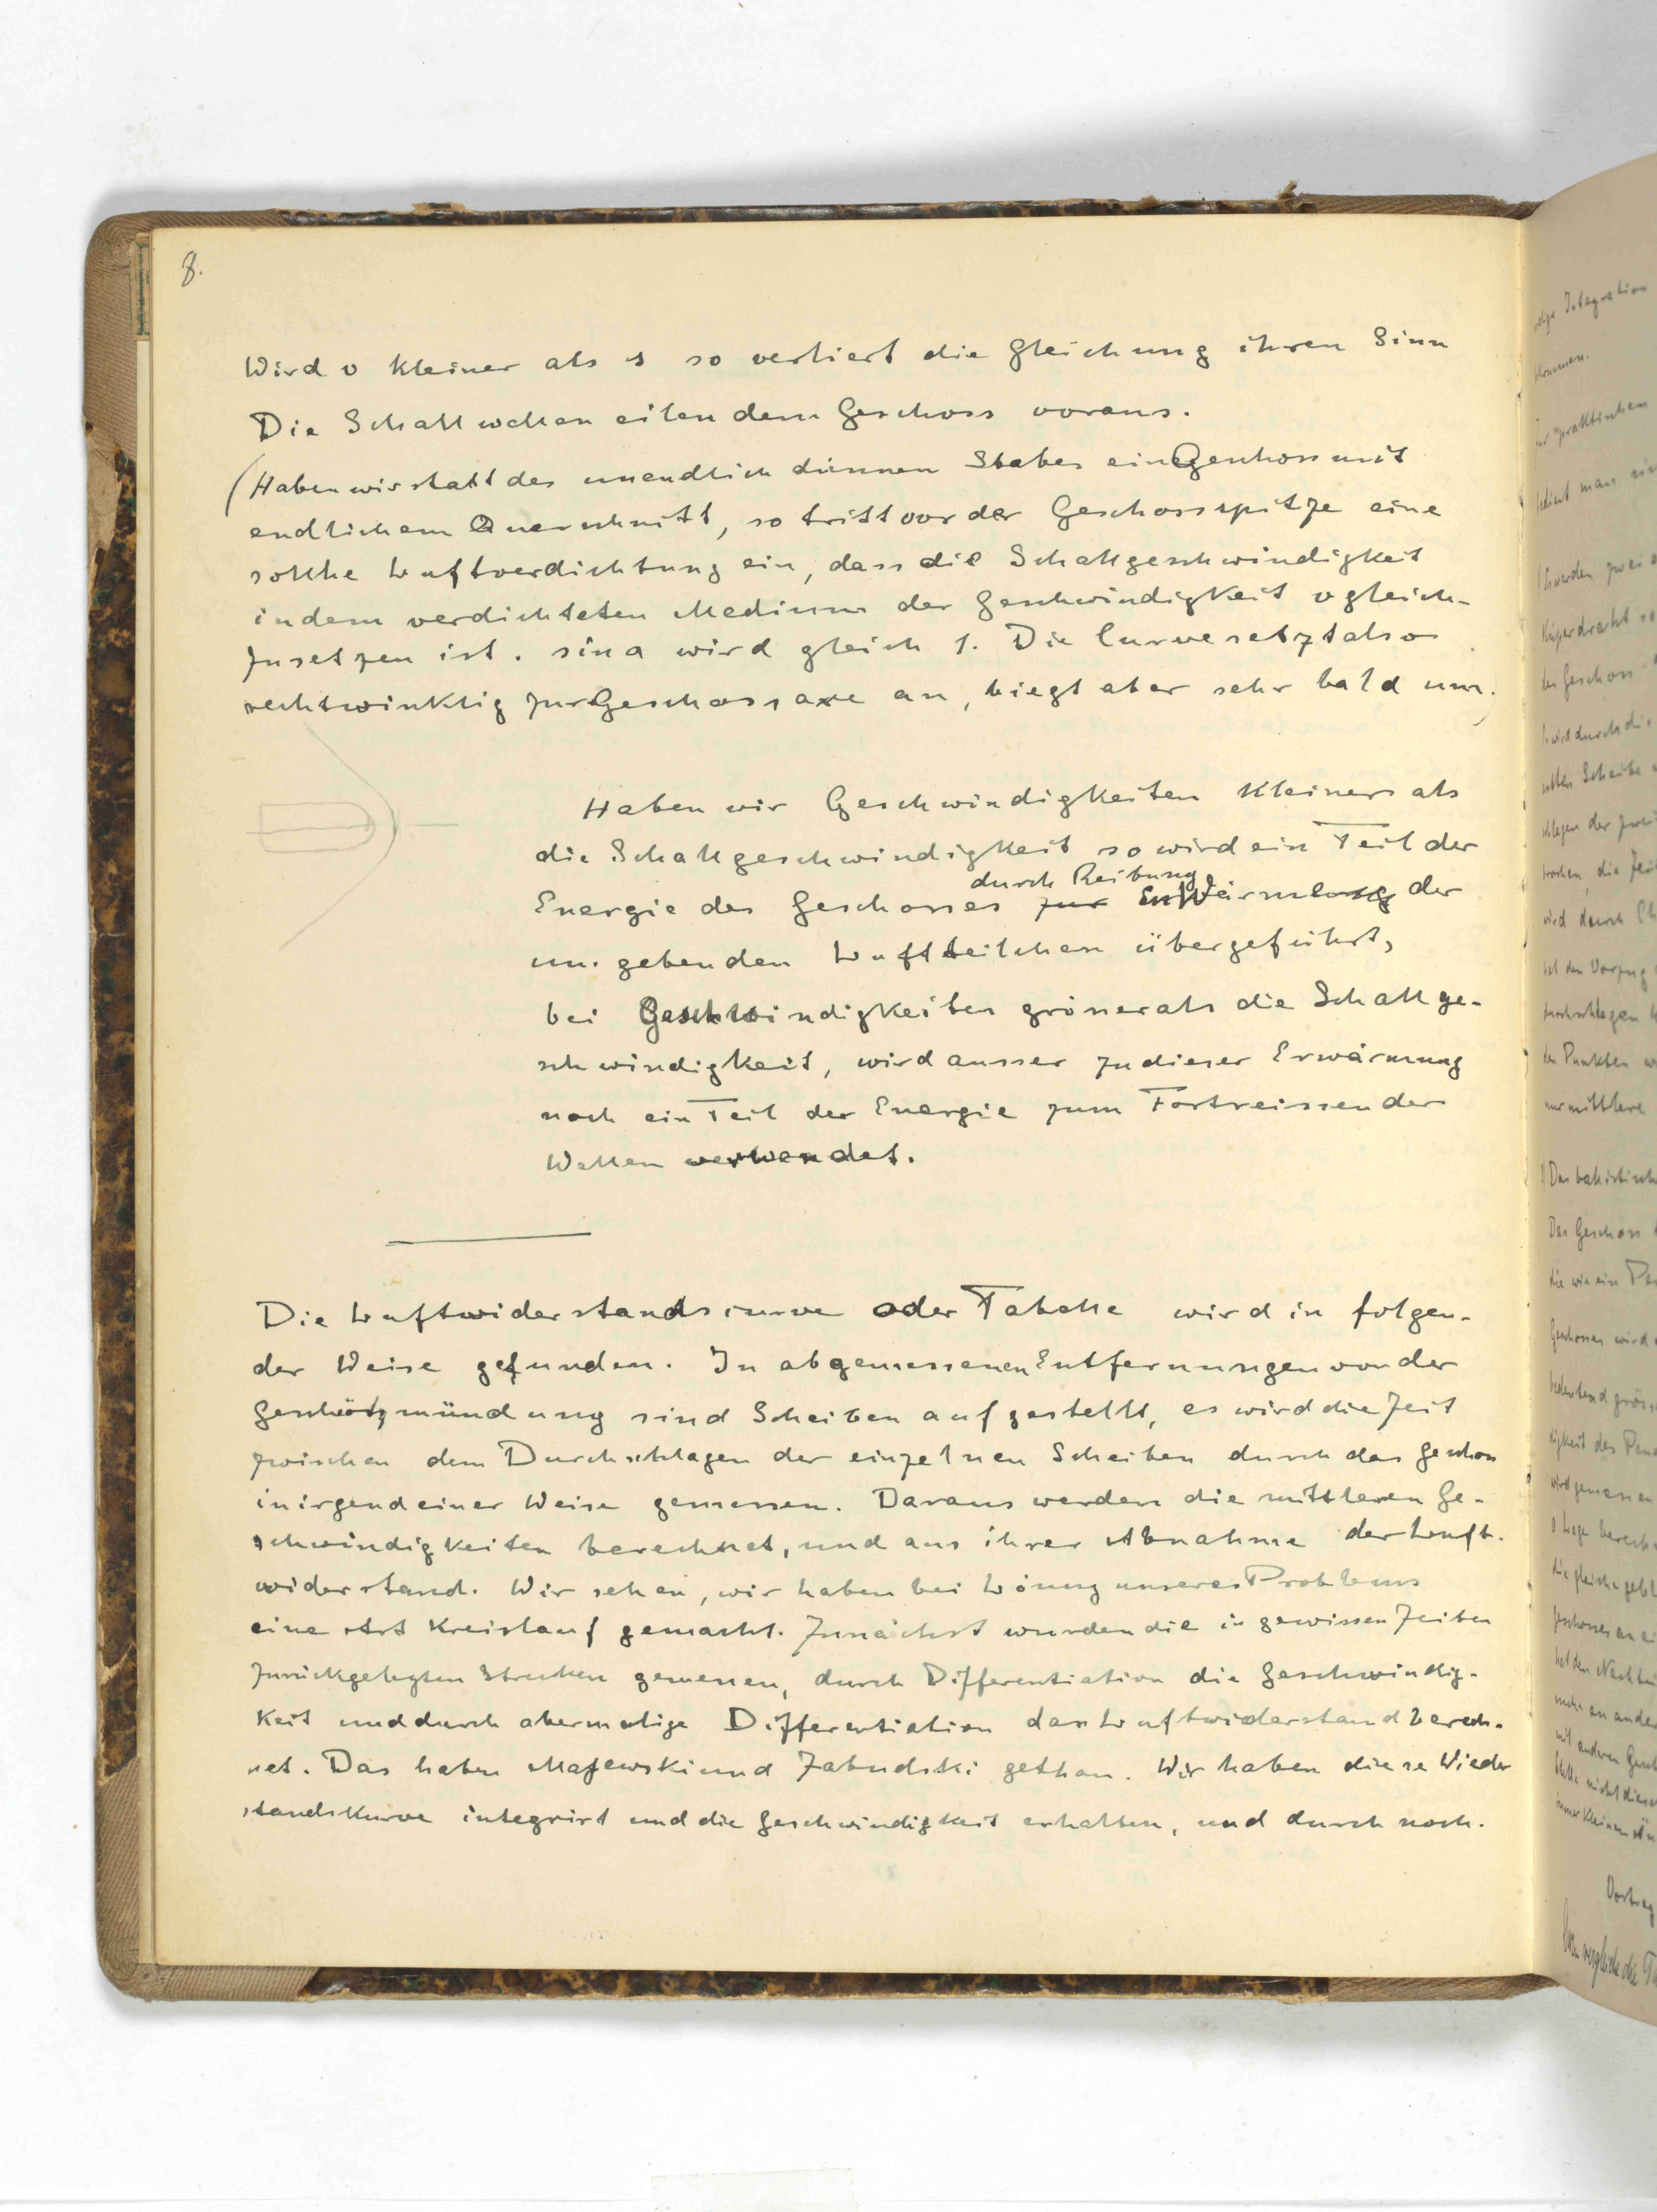 8.
Wird v kleiner als s so verliert die Gleichung ihren Sinn
Die Schallwellen eilen dem Geschoss voraus.
(Haben wir statt des unendlich dünnen Stabes ein Geschoss mit
endlichem Querschnitt, so tritt vor der Geschossspitze eine
solche Luftverdichtung ein, dass die Schallgeschwindigkeit
in dem verdichteten Medium der Geschwindigkeit v gleich-
zusetzen ist. sin α wird gleich 1. Die Curve setzt also
rechtwinklig zur Geschossaxe an, biegt aber sehr bald um.)
Haben wir Geschwindigkeiten kleiner als
die Schallgeschwindigkeit so wird ein Teil der
durch Reibung
Energie des Geschosses zur Erwärmung der
umgebenden Luftteilchen übergeführt,
bei Geschwindigkeiten grösser als die Schallge-
schwindigkeit, wird ausser zu dieser Erwärmung
noch ein Teil der Energie zum Fortreissen der
Wellen verwendet.
Die Luftwiderstandscurve oder Tabelle wird in folgen-
der Weise gefunden. In abgemessenen Entfernungen von der
Geschützmündung sind Scheiben aufgestellt, es wird die Zeit
zwischen dem Durchschlagen der einzelnen Scheiben durch das Geschoss
in irgend einer Weise gemessen. Daraus werden die mittleren Ge-
schwindigkeiten berechnet, und aus ihrer Abnahme der Luft-
widerstand. Wir sehen, wir haben bei Lösung unseres Problems
eine Art Kreislauf gemacht. Zunächst wurden die in gewissen Zeiten
zurückgelegten Strecken gemessen, durch Differentiation die Geschwindig-
keit und durch abermalige Differentiation der Luftwiderstand berech-
net. Das haben Majewski und Zabudski gethan. Wir haben diese Wieder
standskurve integrirt und die Geschwindigkeit erhalten, und durch noch-
Integration
kommen.
praktischen
man
werden zwei
Kupferdraht
das Geschoss
wird durch die
Scheibe
der zwei
wird durch
hat den Vorzug
durchschlagen
den Punkten
nur mittlere
Das ballistische
Das Geschoss
die wie ein
Geschosses wird
bedeutend
wird gemessen
die gleiche
hat den
mit anderen
nicht
immer kleinen
Vortrag